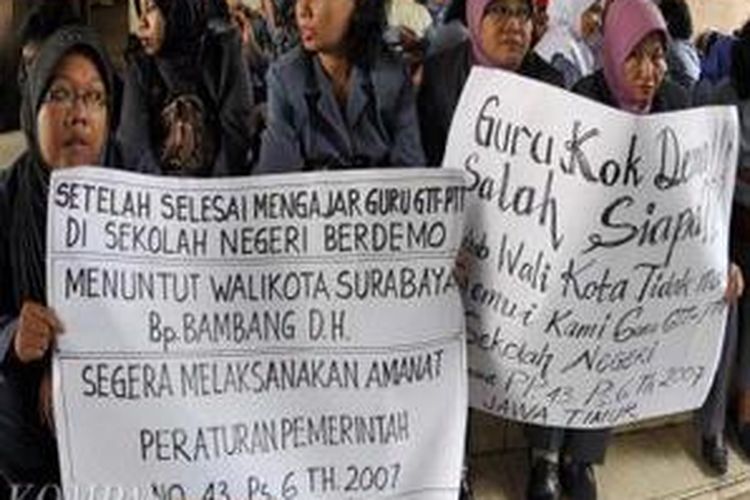 SETELAH SELESAI MENGAJAR GURU GTT-PTT
DI SEKOLAH NEGERI BERDEMO
MENUNTUT WALIKOTA SURABAYA
Bp. BAMBANG D.H.
SEGERA MELAKSANAKAN AMANAT
PERATURAN PEMERINTAH
NO. 43 Ps. 6 TH. 2007
Guru Kok Demo!!
Salah Siapa!!
Wali Kota Tidak
Kami Guru GTT
Sekolah NEGERI
PP. 43. Ps. 6 TH 2007
JAWA TIMUR